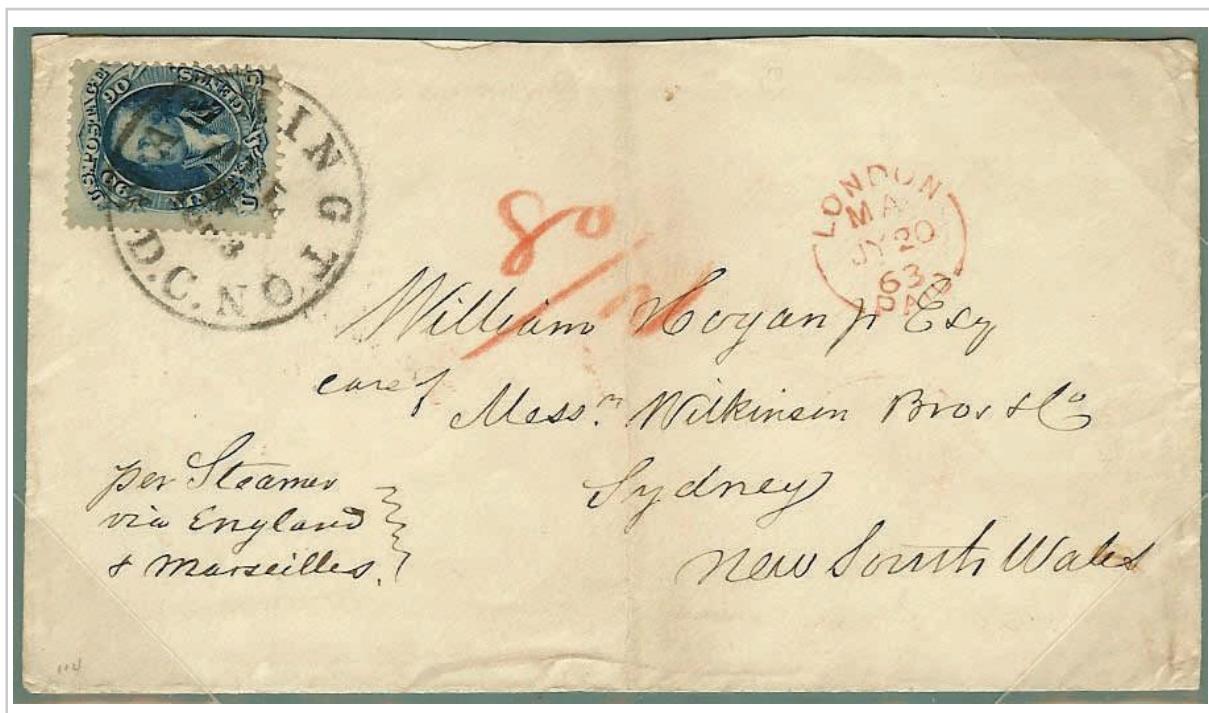 U.S. POSTAGE
90
90
WASHINGTON
D.C.
80/
LONDON
MA
JY 20
63
PAID
William Hogan jr Esq
care of
Messrs. Wilkinson Bros & Co
Sydney
New South Wales
per Steamer
via England
& Marseilles.